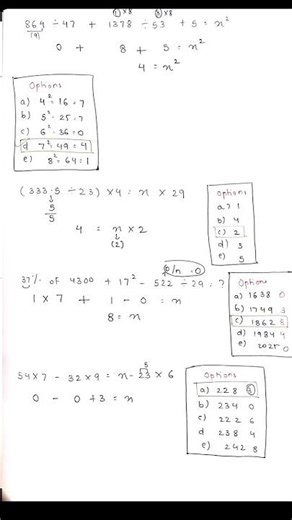 ① × 8 ③ × 8
864 ÷ 47 + 1378 ÷ 53 + 5 = n²
(9)
0 + 8 + 5 = n²
4 = n²
Options
a) 4² = 16 = 7
b) 5² = 25 = 7
c) 6² = 36 = 0
d) 7² = 49 = 4
e) 8² = 64 = 1
(333.5 ÷ 23) × 4 = n × 29
5
5
4 = n × 2
(2)
Options
a) 1
b) 4
c) 2
d) 3
e) 5
0/n = 0
37% of 4300 + 17² - 522 ÷ 29 = ?
1 × 7 + 1 - 0 = n
8 = n
Options
a) 1638 0
b) 1749 3
c) 1862 8
d) 1984 4
e) 2025 0
5
54 × 7 - 32 × 9 = n - 23 × 6
0 - 0 + 3 = n
Options
a) 228 ③
b) 234 0
c) 222 6
d 238 4
e) 242 8